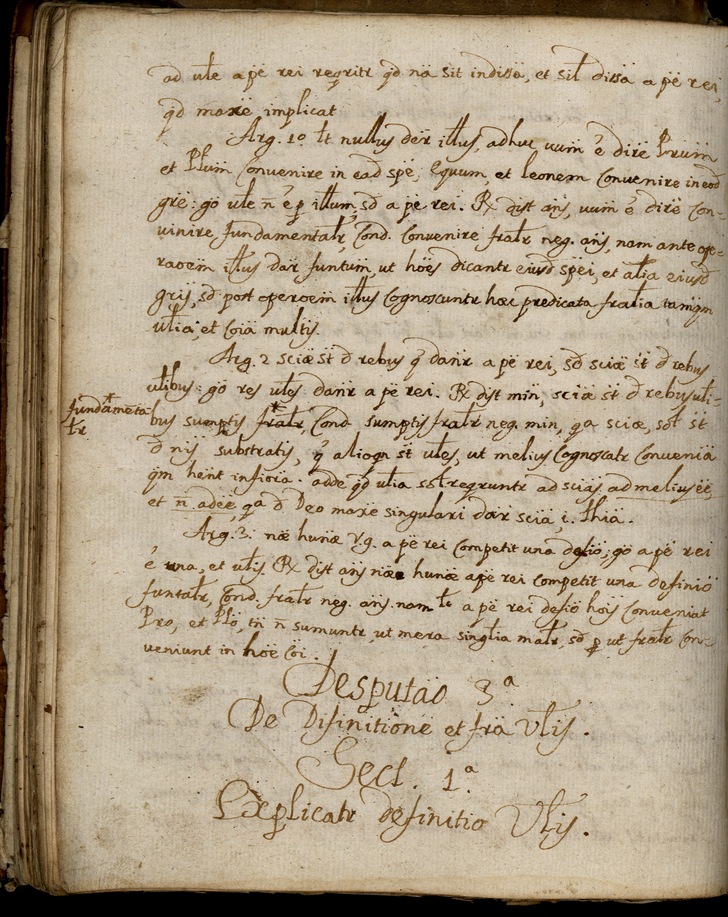 ad ule a pē rei reqritr qd nā sit indissā, et sit dissā a pē rei
qd maxē implicat
Arg. 1o lt nullus der illus, adhuc uum ē dirē Prum
et Plum Convenire in ead spē, Equum, et leonem Convenire in eod
grē: go ule n̄ ē p illum, sd a pē rei. Rx dist anš, uum ē dirē Con-
vinire fundamentalr, Cond. Convenire fralr neg. anš, nam ante ope-
raoem illus dar funtum, ut hoēs dicantr eiusd spēi, et alia eiusd
gris, sd post operoem illus Cognoscuntr haec predicata fralia tamqm
ulia, et Coia multis.
Arg. 2 sciæ st d rebus q danr a pē rei, sd sciæ st d rebus
ulibus: go res ules danr a pē rei. Rx dist min, sciæ st d rebus uli-
bus sumptis * fralr, Cond. sumptis fralr neg. min, qa sciæ, sol st
d nis substratis, q aliogn st ules, ut melius Cognoscatr Convenia
qm hent infiora. adde qd ulia sol reqruntr ad scias ad melius eē,
et n̄ adeē, qa d Deo maxē singulari dar sciā i. Thiā.
Arg. 3. naē hunæ v.g. a pē rei Competit una defio; go a pē rei
ē una, et ulis. Rx dist anš naē hunæ a pē rei competit una definiō
funtalr, Cond. fralr neg. anš. nam lt a pē rei defio hois Conveniat
Pro, et Plo, tn n̄ sumuntr, ut mera singlia malr, sd p ut fralr Con-
veniunt in hoē Coi.
* fundamēta
lr
Desputao 3.a
De Difinitionē et frā Vlis.
Sect. 1.a
Explicatr definitio Vlis.